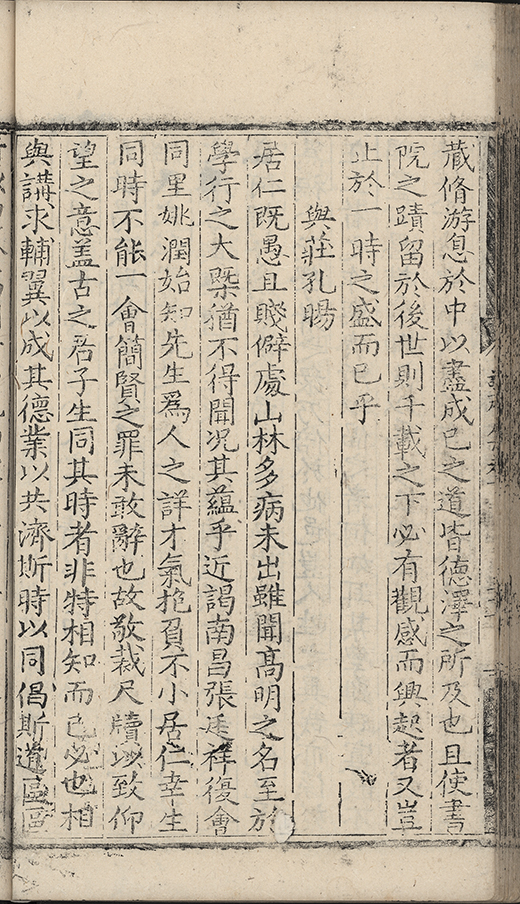 藏脩游息於中以盡成已之道皆德澤之所及也且使書
院之蹟留於後世則千載之下必有觀感而興起者又豈
止於一時之盛而已乎
與莊孔暘
居仁既愚且賤僻處山林多病未出雖聞髙明之名至於
學行之大槩猶不得聞况其蘊乎近謁南昌張廷祥復會
同里姚潤始知先生爲人之詳才氣抱負不小居仁幸生
同時不能一會簡賢之罪未敢辭也故敬裁尺牘以致仰
望之意盖古之君子生同其時者非特相知而已必也相
與講求輔翼以成其德業以共濟斯時以同倡斯道區區